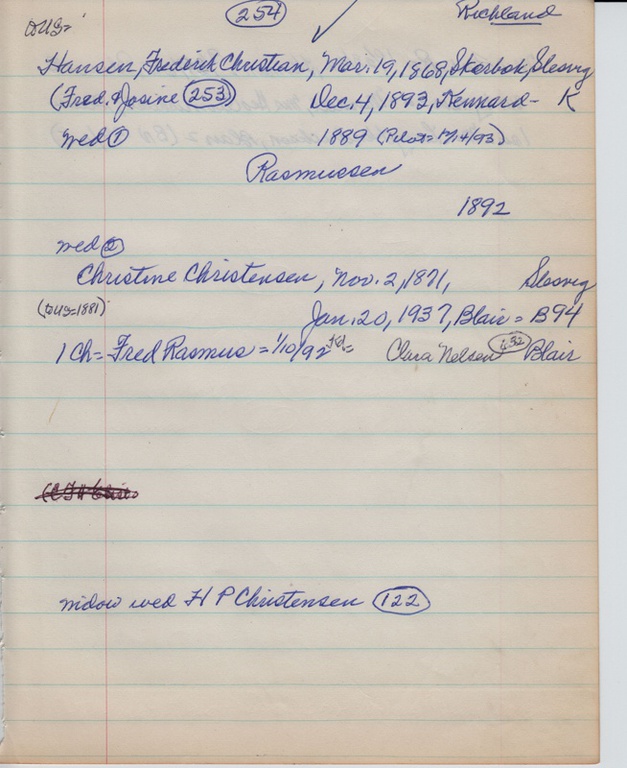 254 Richland
toUS=
Hansen, Frederik Christian, Mar. 19, 1868, Skerbek, Slesvig
(Fred. & Josine 253) Dec. 4, 1893, Kennard - K
wed ① 1889 (Pilot= 12/14/93)
Rasmussen
1892
wed ②
Christine Christensen, Nov. 2, 1871, Slesvig
(toUS=1881) Jan. 20, 1937, Blair = B94
1 Ch= Fred Rasmus = 1/10/92 Clara Nelsen 432 Blair
widow wed H P Christensen 122